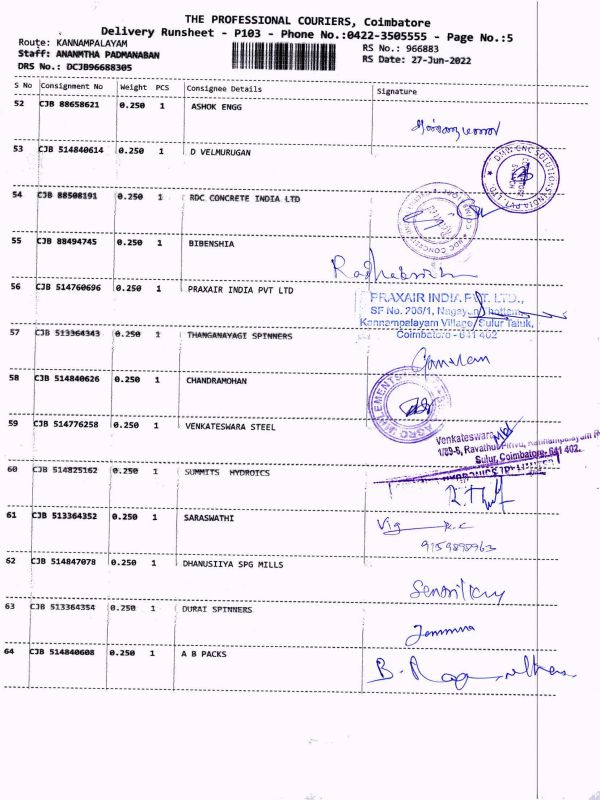 THE PROFESSIONAL COURIERS, Coimbatore
Delivery Runsheet - P103 - Phone No.:0422-3505555 - Page No.:5
Route: KANNAMPALAYAM
RS No.: 966883
Staff: ANANMTHA PADMANABAN
RS Date: 27-Jun-2022
DRS No.: DCJB96688305
S No Consignment No Weight PCS Consignee Details Signature
52 CJB 88658621 0.250 1 ASHOK ENGG
53 CJB 514840614 0.250 1 D VELMURUGAN
DMW CNC SOLUTIONS INDIA PVT. LTD.
54 CJB 88508191 0.250 1 RDC CONCRETE INDIA LTD
55 CJB 88494745 0.250 1 BIBENSHIA
56 CJB 514760696 0.250 1 PRAXAIR INDIA PVT LTD
PRAXAIR INDIA PVT. LTD.,
SF No. 206/1,
Kannampalayam Village, Sulur Taluk,
Coimbatore - 641 402
57 CJB 513364343 0.250 1 THANGANAYAGI SPINNERS
58 CJB 514840626 0.250 1 CHANDRAMOHAN
59 CJB 514776258 0.250 1 VENKATESWARA STEEL
Venkateswara
1/89-6, Ravathur Pirivu, Kannampalayam
Sulur, Coimbatore- 641 402.
60 CJB 514825162 0.250 1 SUMMITS HYDROICS
61 CJB 513364352 0.250 1 SARASWATHI
9159898963
62 CJB 514847078 0.250 1 DHANUSIIYA SPG MILLS
63 CJB 513364354 0.250 1 DURAI SPINNERS
64 CJB 514840608 0.250 1 A B PACKS